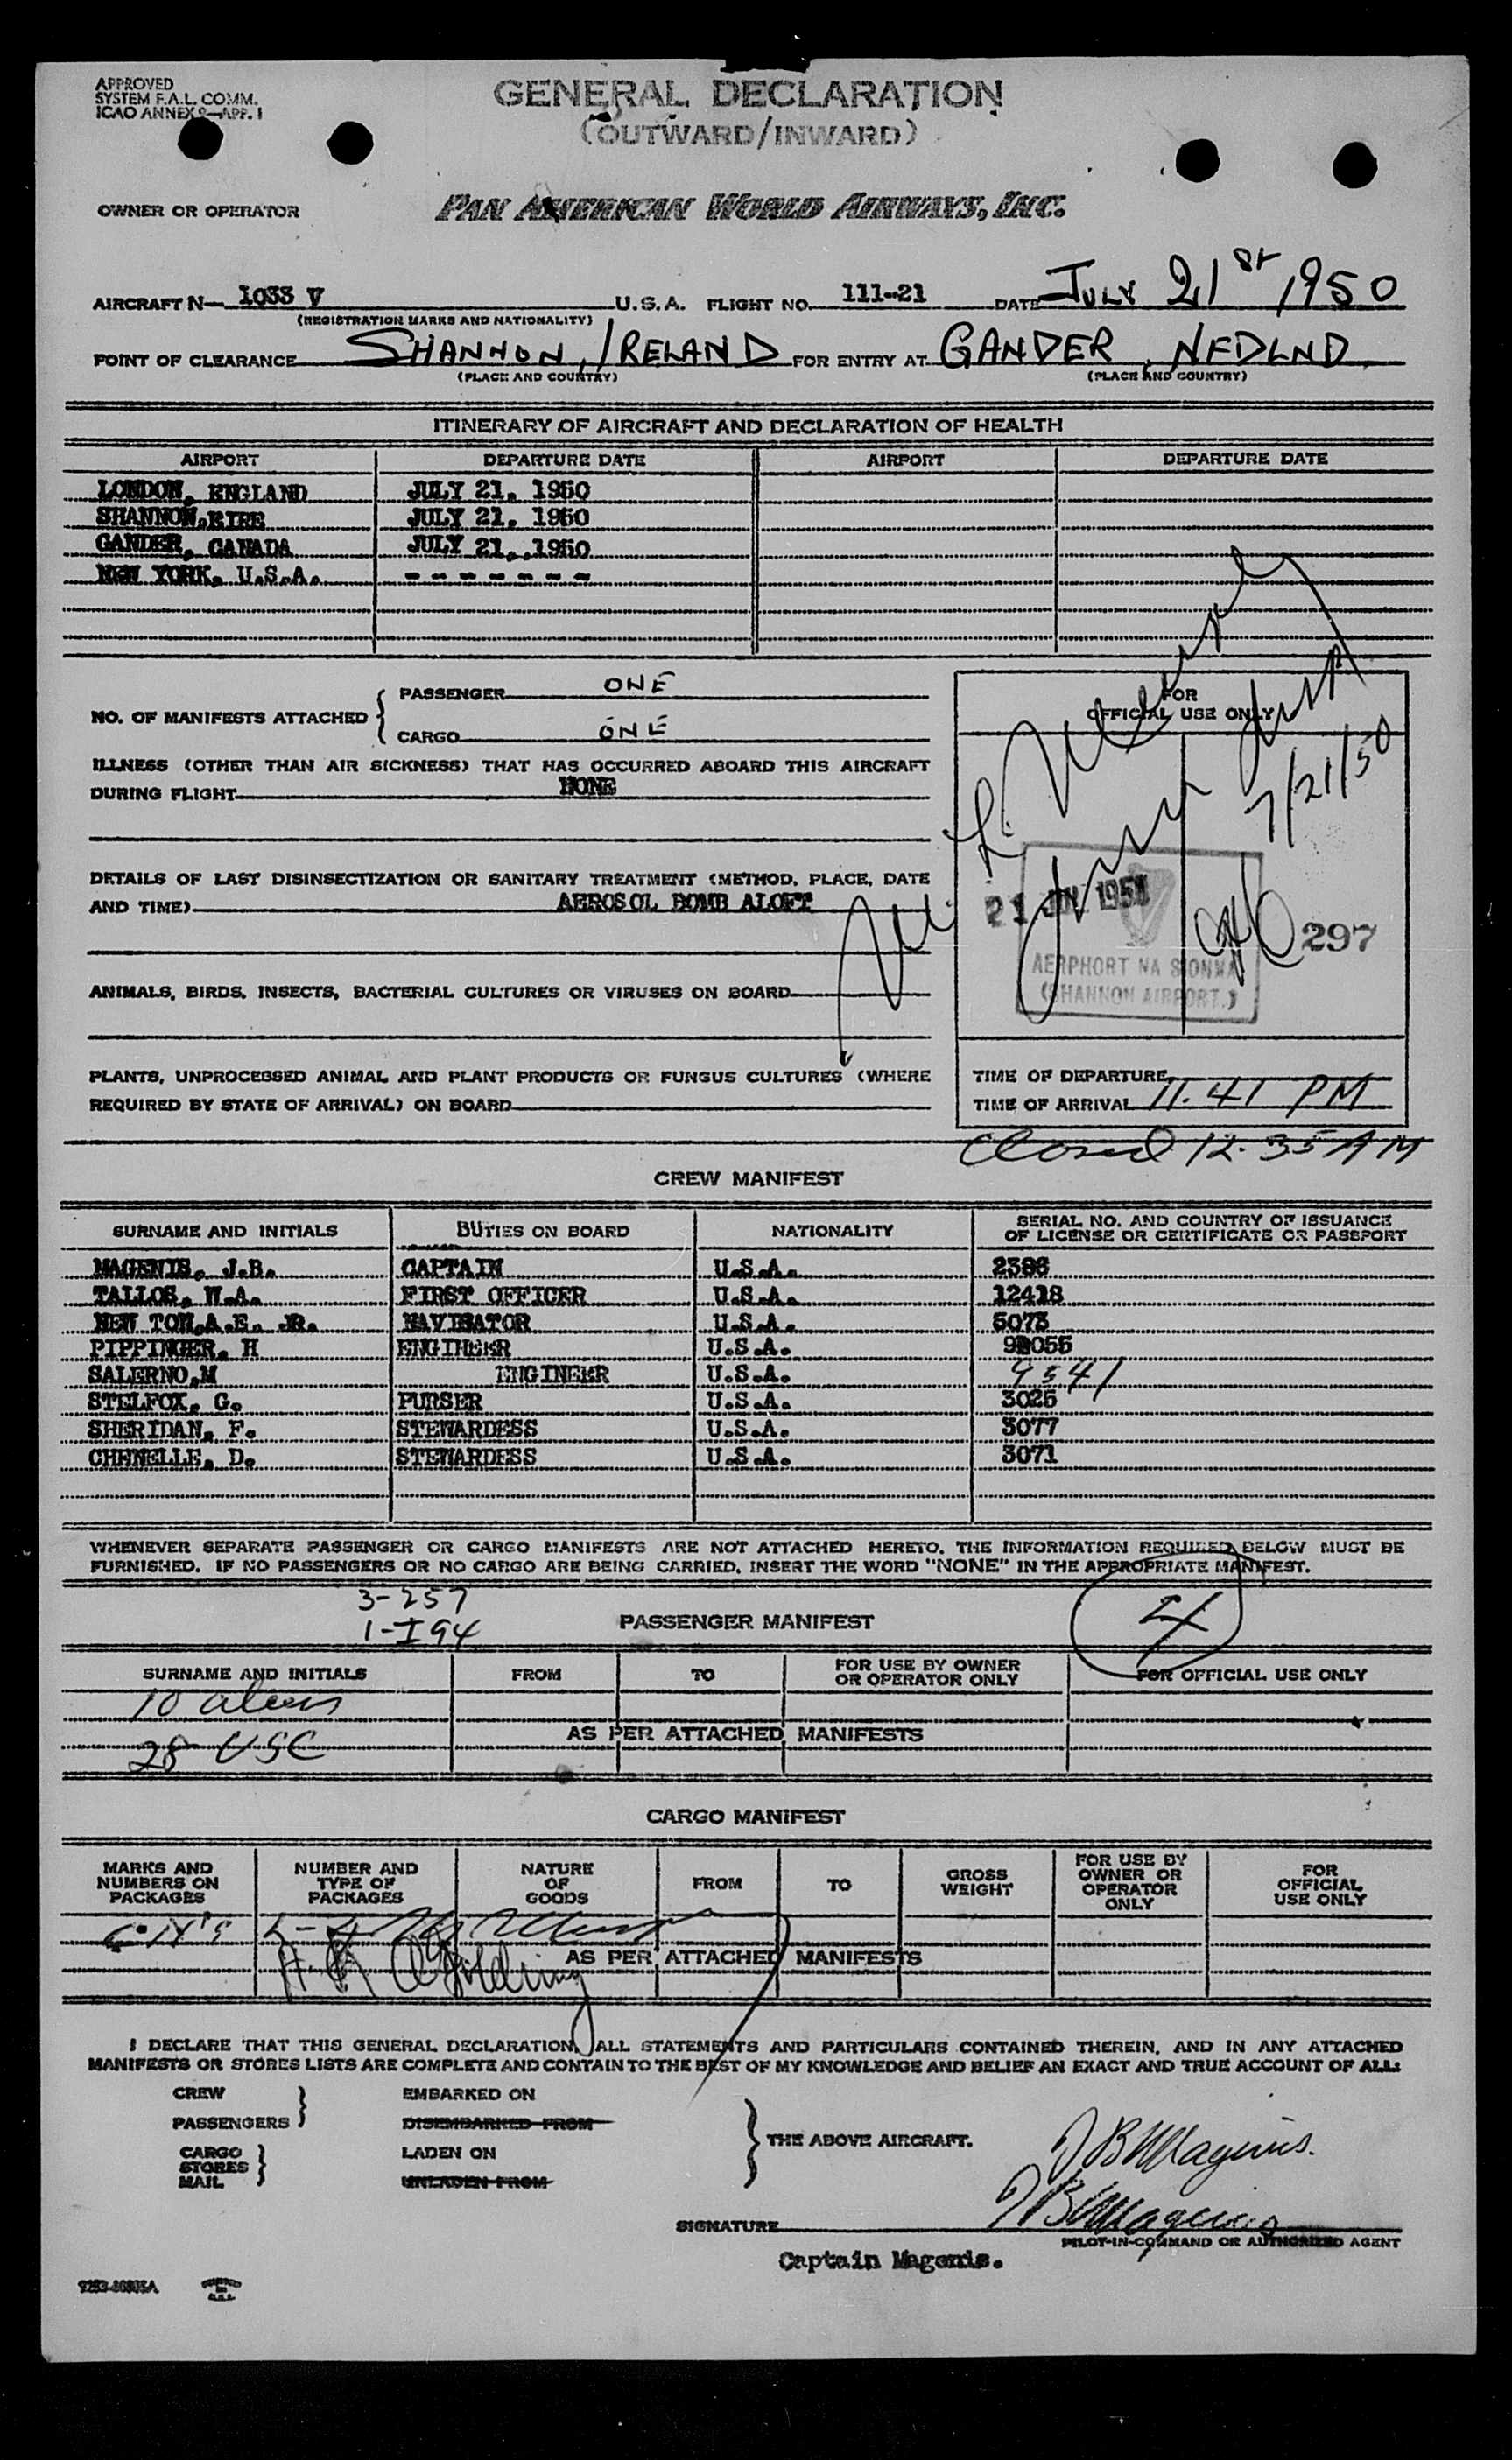 APPROVED
SYSTEM F.A.L. COMM.
ICAO ANNEX 9—APP. I
GENERAL DECLARATION
(OUTWARD/INWARD)
OWNER OR OPERATOR PAN AMERICAN WORLD AIRWAYS, INC.
AIRCRAFT N— 1033 V U.S.A. FLIGHT NO. 111-21 DATE JULY 21st, 1950
(REGISTRATION MARKS AND NATIONALITY)
POINT OF CLEARANCE SHANNON, IRELAND FOR ENTRY AT GANDER, NFDLND
(PLACE AND COUNTRY) (PLACE AND COUNTRY)
ITINERARY OF AIRCRAFT AND DECLARATION OF HEALTH
AIRPORT DEPARTURE DATE AIRPORT DEPARTURE DATE
LONDON, ENGLAND JULY 21, 1950
SHANNON,EIRE JULY 21, 1950
GANDER, CANADA JULY 21,,1950
NEW YORK, U.S.A. - - - - - - -
NO. OF MANIFESTS ATTACHED { PASSENGER ONE
CARGO ONE
FOR
OFFICIAL USE ONLY
ILLNESS (OTHER THAN AIR SICKNESS) THAT HAS OCCURRED ABOARD THIS AIRCRAFT
DURING FLIGHT NONE
7/21/50
DETAILS OF LAST DISINSECTIZATION OR SANITARY TREATMENT (METHOD, PLACE, DATE
AND TIME) AEROSOL BOMB ALOFT
297
AERPHORT NA SIONNA
(SHANNON AIRPORT.)
ANIMALS, BIRDS, INSECTS, BACTERIAL CULTURES OR VIRUSES ON BOARD
PLANTS, UNPROCESSED ANIMAL AND PLANT PRODUCTS OR FUNGUS CULTURES (WHERE
REQUIRED BY STATE OF ARRIVAL) ON BOARD
TIME OF DEPARTURE
TIME OF ARRIVAL 11.41 PM
Closed 12.35 AM
CREW MANIFEST
SURNAME AND INITIALS DUTIES ON BOARD NATIONALITY SERIAL NO. AND COUNTRY OF ISSUANCE
OF LICENSE OR CERTIFICATE OR PASSPORT
MAGENIS, J.B. CAPTAIN U.S.A. 2386
TALLOS, W.A. FIRST OFFICER U.S.A. 12418
NEW TON,A.E. JR. NAVIGATOR U.S.A. 5073
PIPPINGER, H ENGINEER U.S.A.
SALERNO,M ENGINEER U.S.A. 9541
STELFOX, G. PURSER U.S.A. 3025
SHERIDAN, F. STEWARDESS U.S.A. 3077
CHENELLE, D. STEWARDESS U.S.A. 3071
WHENEVER SEPARATE PASSENGER OR CARGO MANIFESTS ARE NOT ATTACHED HERETO, THE INFORMATION REQUIRED BELOW MUST BE
FURNISHED. IF NO PASSENGERS OR NO CARGO ARE BEING CARRIED, INSERT THE WORD "NONE" IN THE APPROPRIATE MANIFEST.
3-257
1-I94
PASSENGER MANIFEST
4
SURNAME AND INITIALS FROM TO FOR USE BY OWNER
OR OPERATOR ONLY FOR OFFICIAL USE ONLY
10 aliens
AS PER ATTACHED MANIFESTS
28 USC
CARGO MANIFEST
MARKS AND
NUMBERS ON
PACKAGES NUMBER AND
TYPE OF
PACKAGES NATURE
OF
GOODS FROM TO GROSS
WEIGHT FOR USE BY
OWNER OR
OPERATOR
ONLY FOR
OFFICIAL
USE ONLY
AS PER ATTACHED MANIFESTS
I DECLARE THAT THIS GENERAL DECLARATION, ALL STATEMENTS AND PARTICULARS CONTAINED THEREIN, AND IN ANY ATTACHED
MANIFESTS OR STORES LISTS ARE COMPLETE AND CONTAIN TO THE BEST OF MY KNOWLEDGE AND BELIEF AN EXACT AND TRUE ACCOUNT OF ALL:
CREW EMBARKED ON
PASSENGERS DISEMBARKED FROM
THE ABOVE AIRCRAFT.
CARGO LADEN ON
STORES
MAIL UNLADEN FROM
JB Magenis.
SIGNATURE JB Magenis
PILOT-IN-COMMAND OR AUTHORIZED AGENT
Captain Magenis.